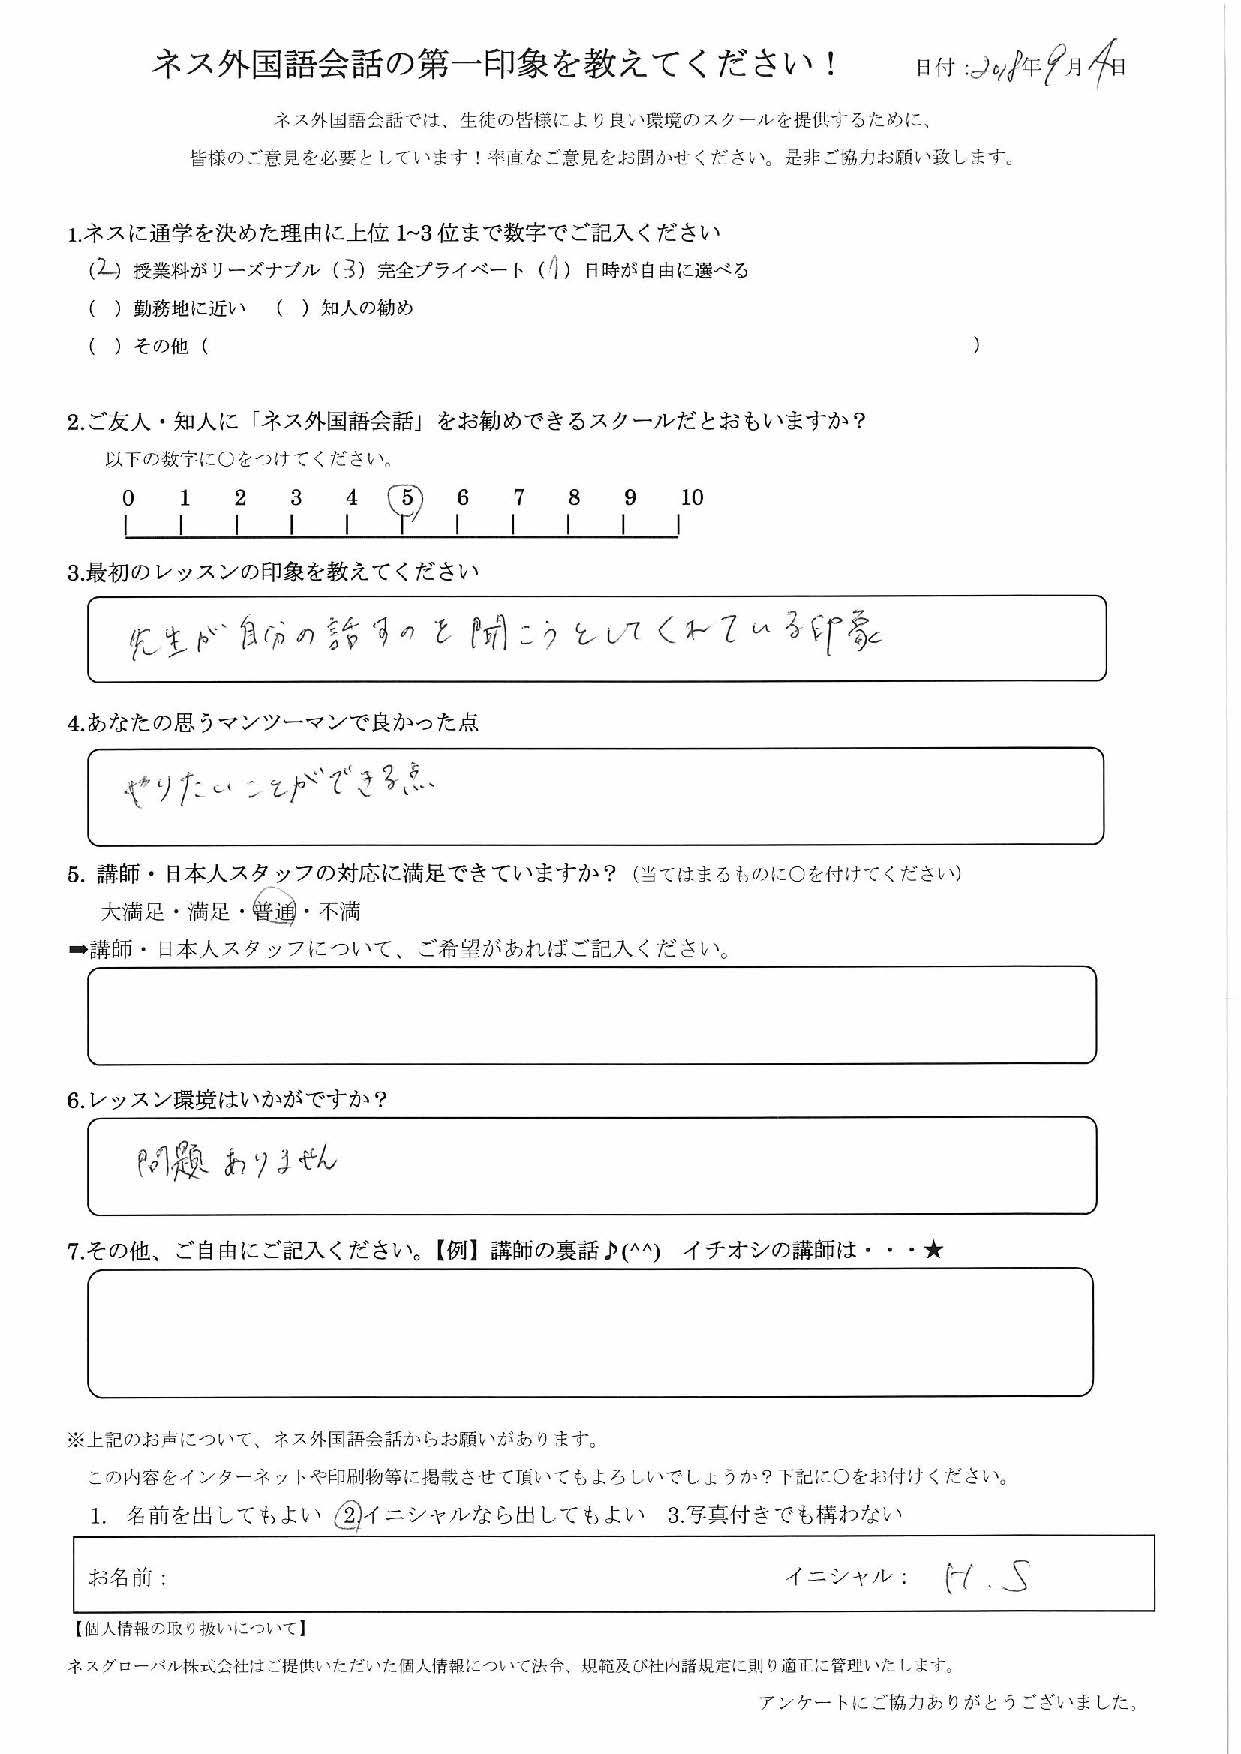 ネス外国語会話の第一印象を教えてください！ 日付:2018年9月4日
ネス外国語会話では、生徒の皆様により良い環境のスクールを提供するために、
皆様のご意見を必要としています！率直なご意見をお聞かせください。是非ご協力お願い致します。
1.ネスに通学を決めた理由に上位 1~3 位まで数字でご記入ください
（2）授業料がリーズナブル（3）完全プライベート（1）日時が自由に選べる
（ ）勤務地に近い （ ）知人の勧め
（ ）その他（ ）
2.ご友人・知人に「ネス外国語会話」をお勧めできるスクールだとおもいますか？
以下の数字に〇をつけてください。
0 1 2 3 4 5 6 7 8 9 10
3.最初のレッスンの印象を教えてください
先生が自分の話すのを聞こうとしてくれている印象
4.あなたの思うマンツーマンで良かった点
やりたいことができる点
5. 講師・日本人スタッフの対応に満足できていますか？（当てはまるものに〇を付けてください）
大満足・満足・普通・不満
➡講師・日本人スタッフについて、ご希望があればご記入ください。
6.レッスン環境はいかがですか？
問題ありません
7.その他、ご自由にご記入ください。【例】講師の裏話♪(^^)　イチオシの講師は・・・★
※上記のお声について、ネス外国語会話からお願いがあります。
この内容をインターネットや印刷物等に掲載させて頂いてもよろしいでしょうか？下記に〇をお付けください。
1. 名前を出してもよい ②イニシャルなら出してもよい 3.写真付きでも構わない
お名前： イニシャル： H.S
【個人情報の取り扱いについて】
ネスグローバル株式会社はご提供いただいた個人情報について法令、規範及び社内諸規定に則り適正に管理いたします。
アンケートにご協力ありがとうございました。